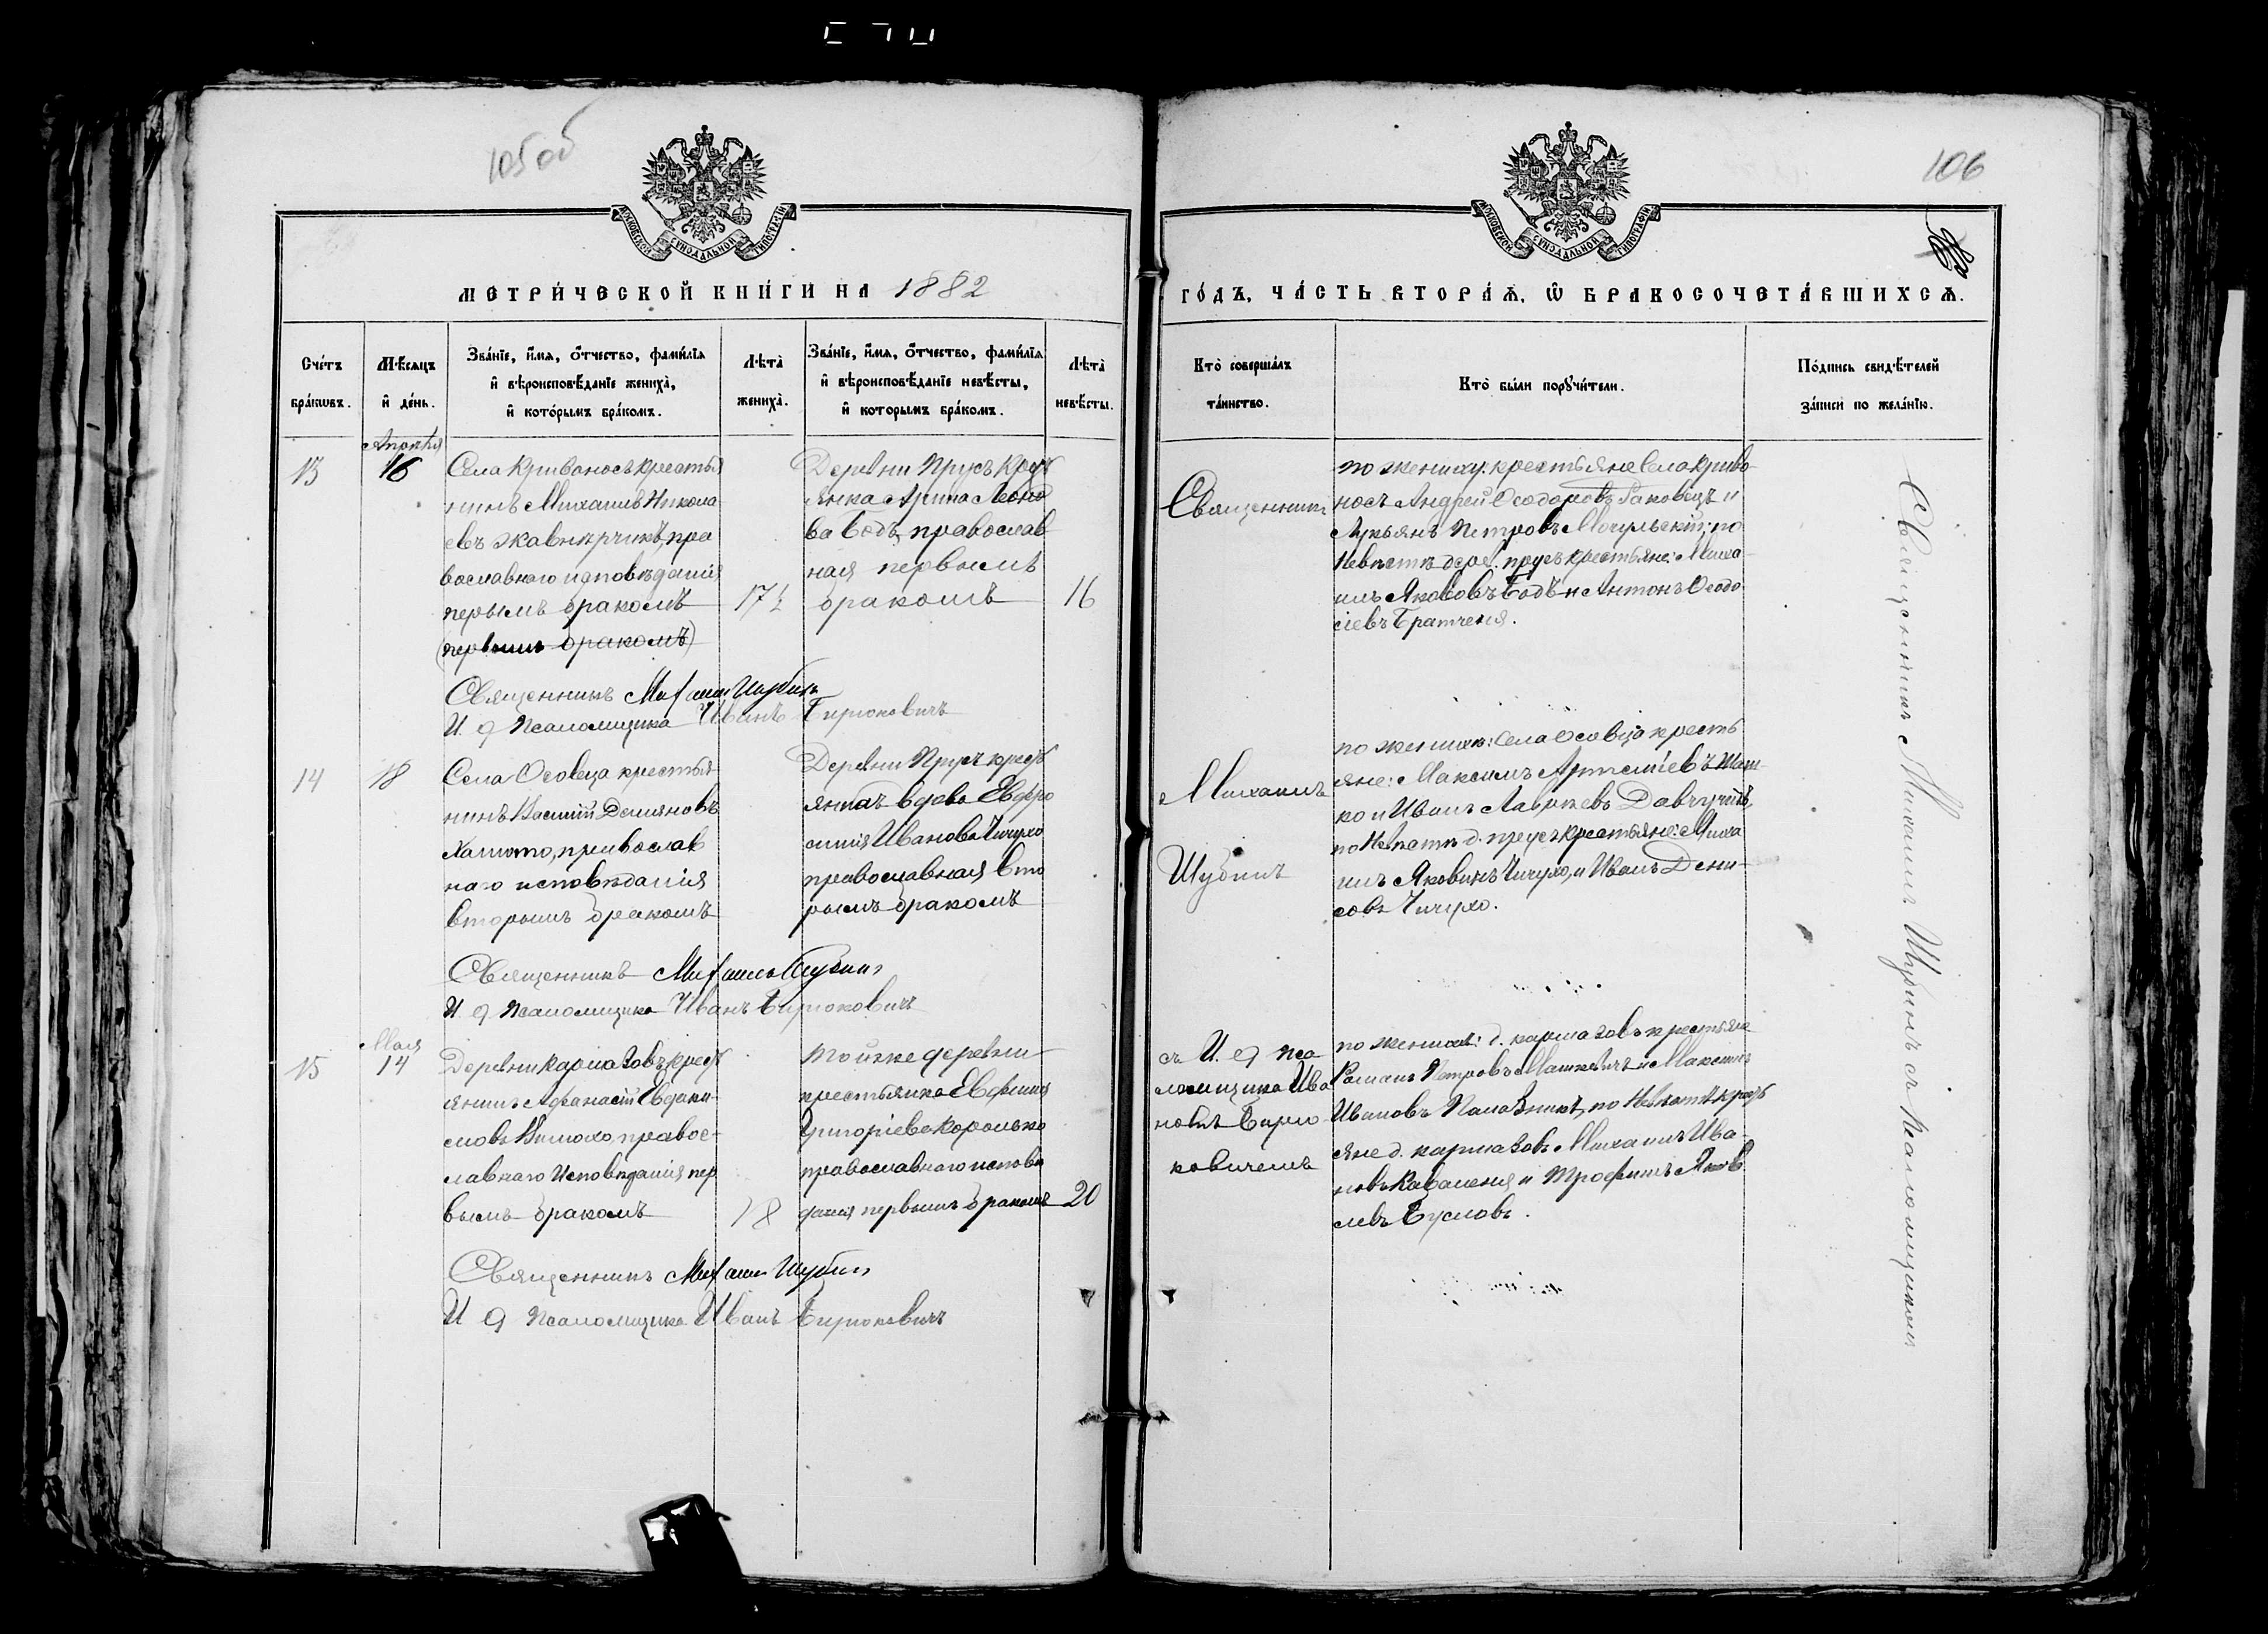 105 об
106
МЕТРИ́ЧЕСКОЙ КНИ́ГИ НА 1882
ГО́ДЪ, ЧА́СТЬ ВТОРА́Ѧ, Ѽ БРАКОСОЧЕТА́ВШИХСѦ.
Сче́тъ бра́кѡвъ.
Мѣ́сяцъ и҆ де́нь.
Зва́нїе, и҆́мѧ, ѻ҆́тчество, фами́лїѧ
и҆ вѣроисповѣ́данїе жениха̀,
и҆ кото́рымъ бра́комъ.
Лѣта̀
жениха̀.
Зва́нїе, и҆́мѧ, ѻ҆́тчество, фами́лїѧ
и҆ вѣроисповѣ́данїе невѣ́сты,
и҆ которымъ бра́комъ.
Лѣта̀
невѣ́сты.
Кто̀ соверша́лъ
та́инство.
Кто̀ бы́ли порꙋчи́тели.
По́дпись свидѣ́телей
за́писи по жела́нїю.
13
Апрѣля
16
Села Кривоносъ крестья
нинъ Михаилъ Никола
евъ Жавнерчикъ, пра
вославнаго исповѣданія
первымъ бракомъ
(первымъ бракомъ)
17½
Деревни Прусъ крес
янка Арина Леоно
ва Бодъ православ
ная первымъ
бракомъ
16
Священникъ
по жениху: крестьяне села Криво-
носъ Андрей Ѳеодоровъ Раковецъ и
Лукьянъ Петровъ Мочульскій; по
невѣстѣ дерев. Прусъ крестьяне: Миха-
илъ Яковъ Бодъ и Антонъ Ѳеодо-
сіевъ Братченя.
Священникъ Михаилъ Шубинъ
И. д. Псаломщика Иванъ Бирюковичъ
14
18
Села Осовца крестья
нинъ Василій Демяновъ
православ
наго исповѣданія
вторымъ бракомъ
Деревни Прусъ крес
янка вдова Евфро
синія Иванова Чичухо
православная вто
рымъ бракомъ
Михаилъ
Шубинъ
по жениху: села Осовца кресть
яне: Максимъ Артеміевъ
ко и Иванъ
по невѣстѣ д. Прусъ крестьяне: Миха
илъ Чичухо, и Иванъ Дени-
совъ Чичухо.
Священникъ Михаилъ Шубинъ
И д Псаломщика Иванъ Бирюковичъ
15
Мая
14
Деревни Кармазовъ крес
янинъ Афанасій Евдоки
мовъ православ-
лавнаго исповѣданія пер
вымъ бракомъ
18
той же деревни
крестьянка Евфимія
Григоріева Королько
православнаго исповѣ
данія первымъ бракомъ
20
съ И. д. Пса
ломщика Ива
номъ Бирю-
ковичемъ
по жениху: д. Кармазовъ крестьяне
Романъ Петровъ Машкевичъ и Максимъ
Ивановъ по невѣстѣ крес
яне д. Кармазовъ Михаилъ Ива-
новъ Коваленя и Трофимъ Яков
левъ Бусловъ.
Священникъ Михаилъ Шубинъ
И д Псаломщика Иванъ Бирюковичъ
Священникъ Михаилъ Шубинъ съ Псаломщикомъ